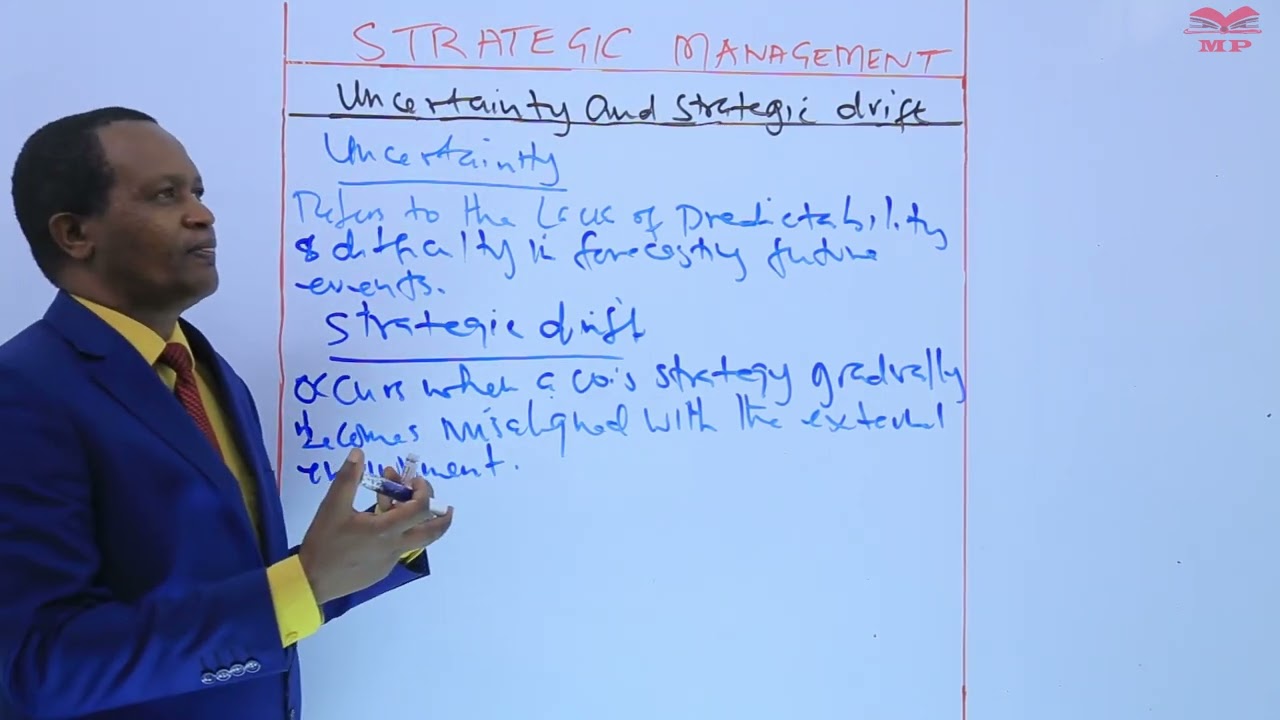 MP
STRATEGIC MANAGEMENT
Uncertainty and strategic drift
Uncertainty
Refers to the Lack of predictability
& difficulty in forecasting future
events.
Strategic drift
Occurs when a co.'s strategy gradually
becomes misaligned with the external
environment.